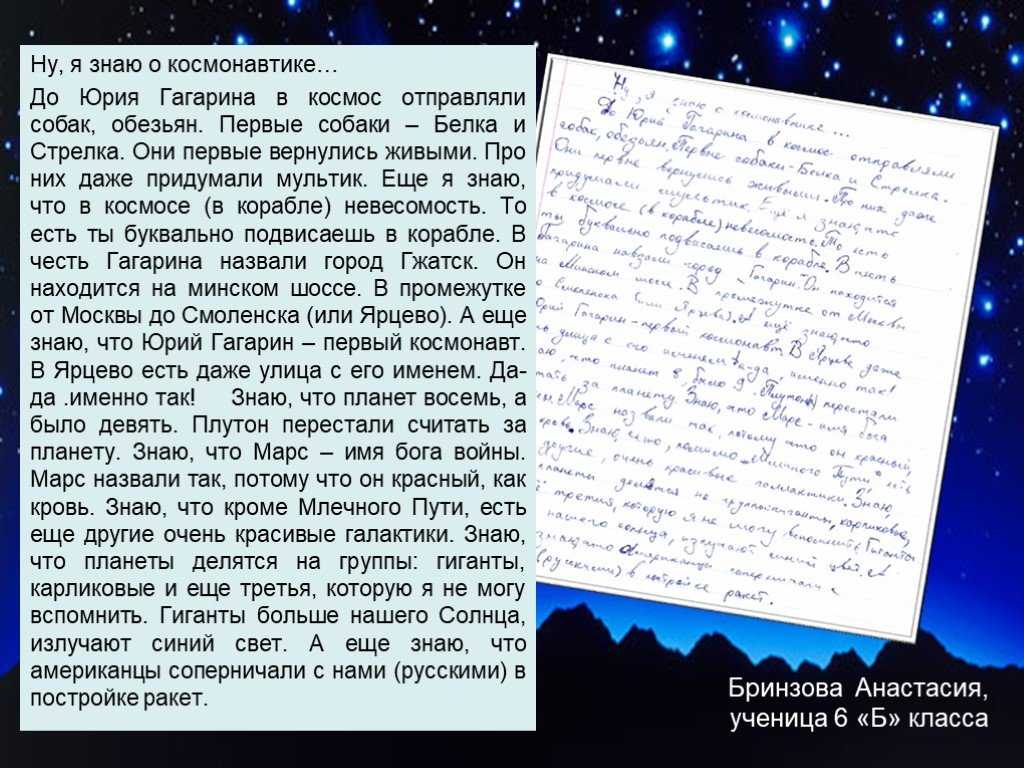 Ну, я знаю о космонавтике…
До Юрия Гагарина в космос отправляли
собак, обезьян. Первые собаки – Белка и
Стрелка. Они первые вернулись живыми. Про
них даже придумали мультик. Еще я знаю,
что в космосе (в корабле) невесомость. То
есть ты буквально подвисаешь в корабле. В
честь Гагарина назвали город Гжатск. Он
находится на минском шоссе. В промежутке
от Москвы до Смоленска (или Ярцево). А еще
знаю, что Юрий Гагарин – первый космонавт.
В Ярцево есть даже улица с его именем. Да-
да .именно так! Знаю, что планет восемь, а
было девять. Плутон перестали считать за
планету. Знаю, что Марс – имя бога войны.
Марс назвали так, потому что он красный, как
кровь. Знаю, что кроме Млечного Пути, есть
еще другие очень красивые галактики. Знаю,
что планеты делятся на группы: гиганты,
карликовые и еще третья, которую я не могу
вспомнить. Гиганты больше нашего Солнца,
излучают синий свет. А еще знаю, что
американцы соперничали с нами (русскими) в
постройке ракет.
Ну, я знаю о космонавтике...
До Юрий Гагарина в космос отправляли
собак, обезьян. Первые собаки - Белка и Стрелка.
Они первые вернулись живыми. Про них даже
придумали мультик. Ещё я знаю, что
в космосе (в корабле) невесомость. То есть
ты буквально подвисаешь в корабле. В честь
Гагарина назвали город "Гагарин". Он находится
на Минском шоссе. В промежутке от Москвы
до Смоленска (или Ярцева). А ещё знаю, что
Юрий Гагарин - первый космонавт. В Ярцеве даже
улица с его именем. Да-да, именно так!
что планет 8, было 9. (Плутон) перестали
считать за планету. Знаю, что Марс - имя бога
Марс назвали так, потому что он красный,
Знаю, что, помимо Млечного Пути, есть
другие, очень красивые галлактики. Знаю,
планеты делятся на группы: гиганты, карликовые,
третия, которую я не могу вспомнить. Гиганты
нашего солнца, излучают синий цвет. А
знаю, что американцы соперничали с
(русскими) в постройке ракет.
Бринзова Анастасия,
ученица 6 «Б» класса